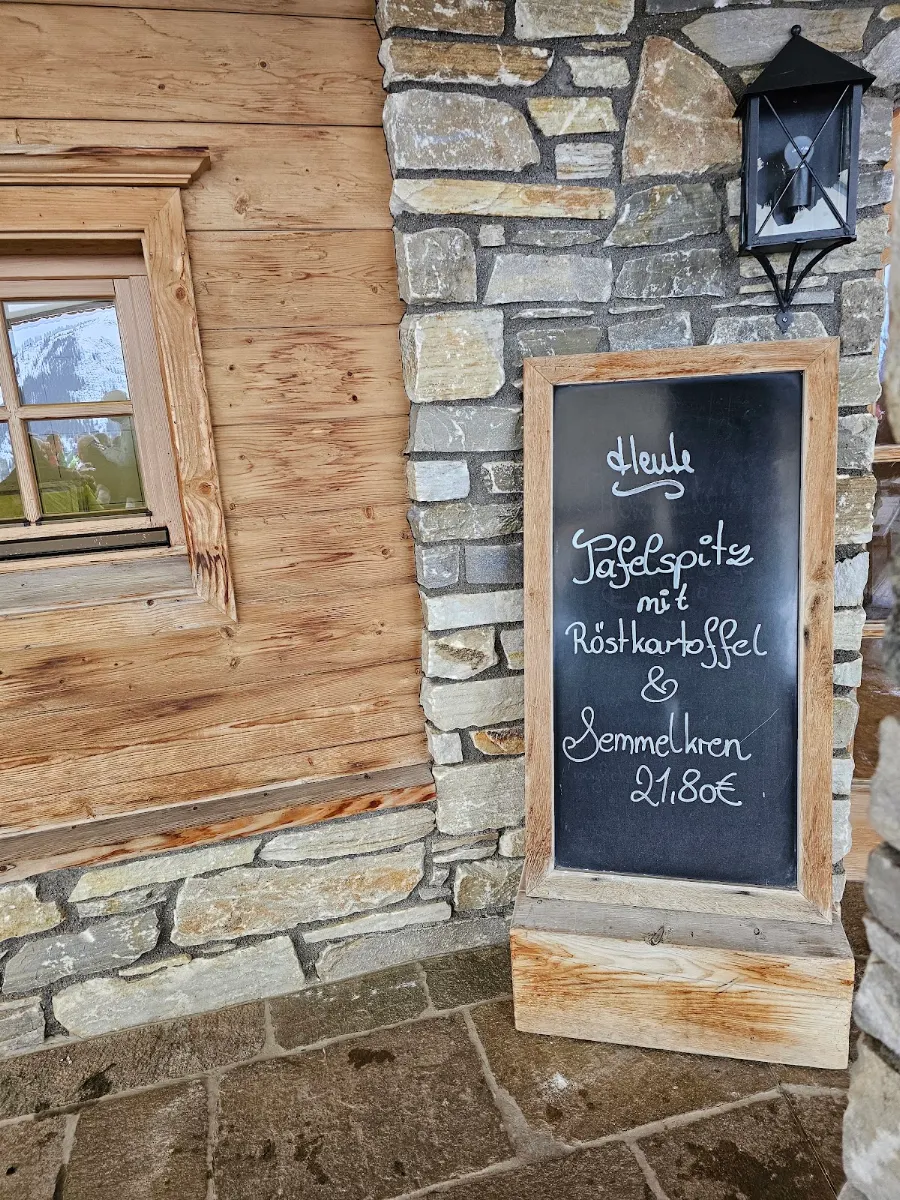 Heute
Tafelspitz
mit
Röstkartoffel
&
Semmelkren
21,80€